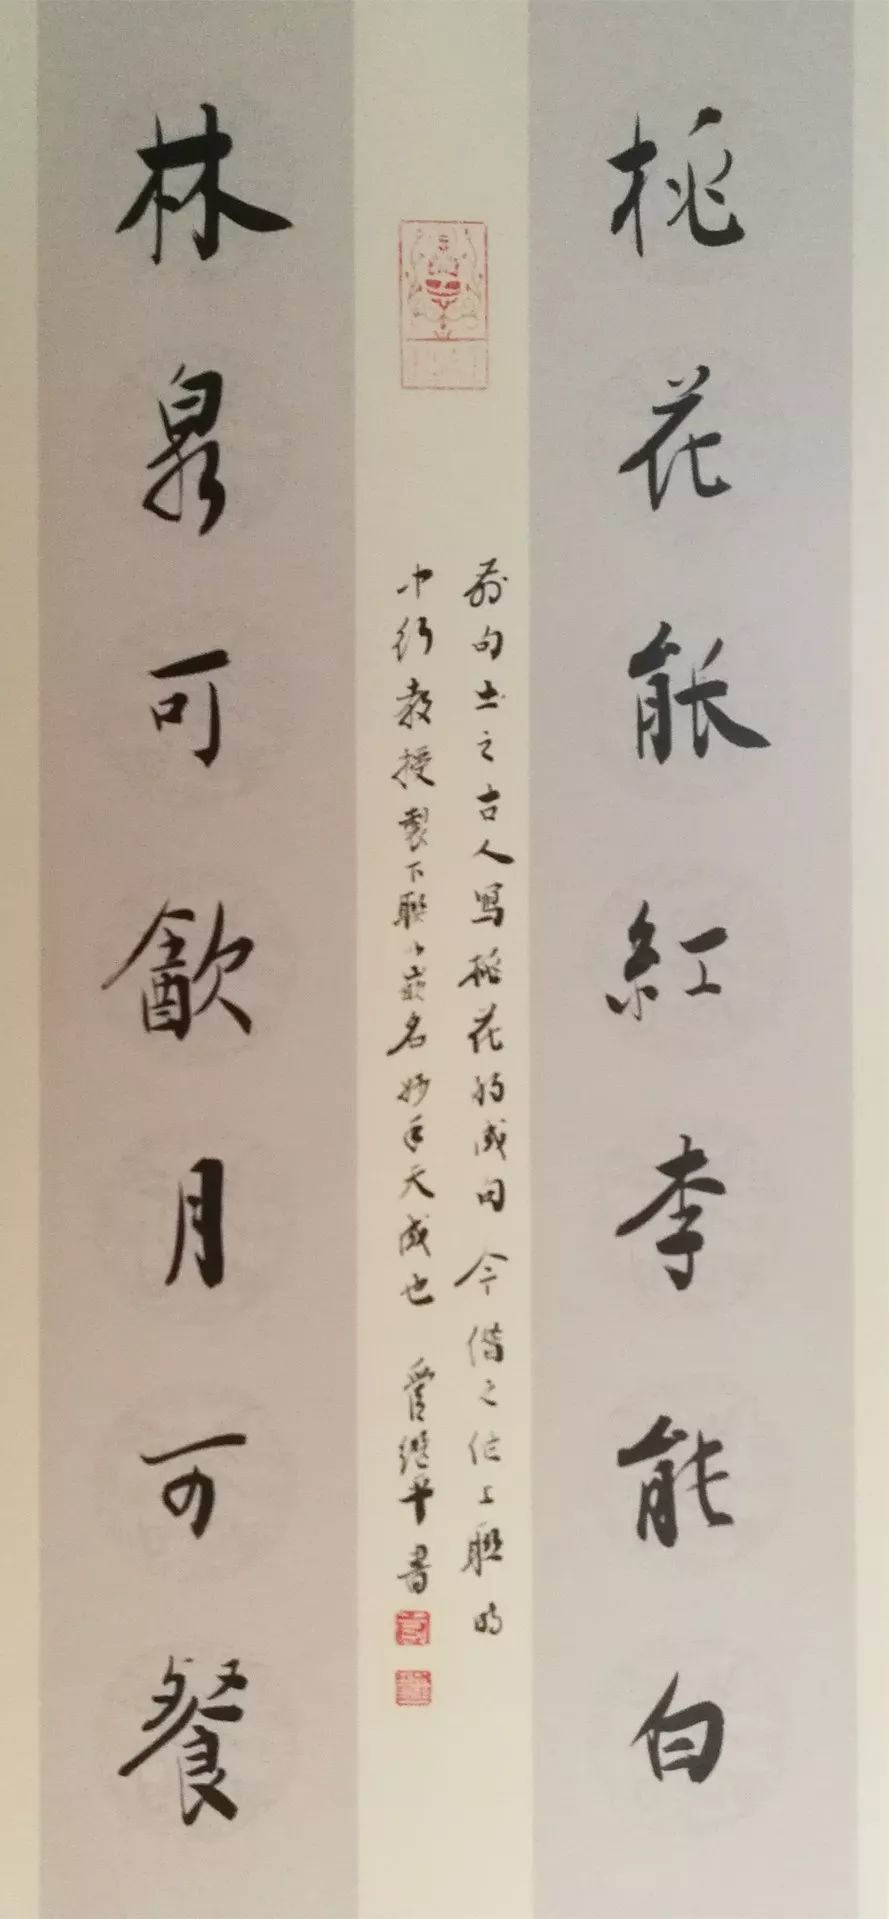 桃花能紅李能白
前句出之古人寫桃花的成句今借之作上聯
中行教授製下聯以嵌名妙手天成也 管继平書
林泉可歠月可餐